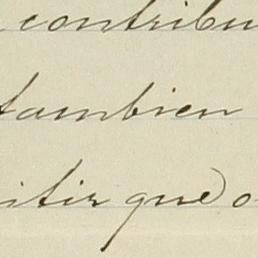 contribu
tambien
itir que o